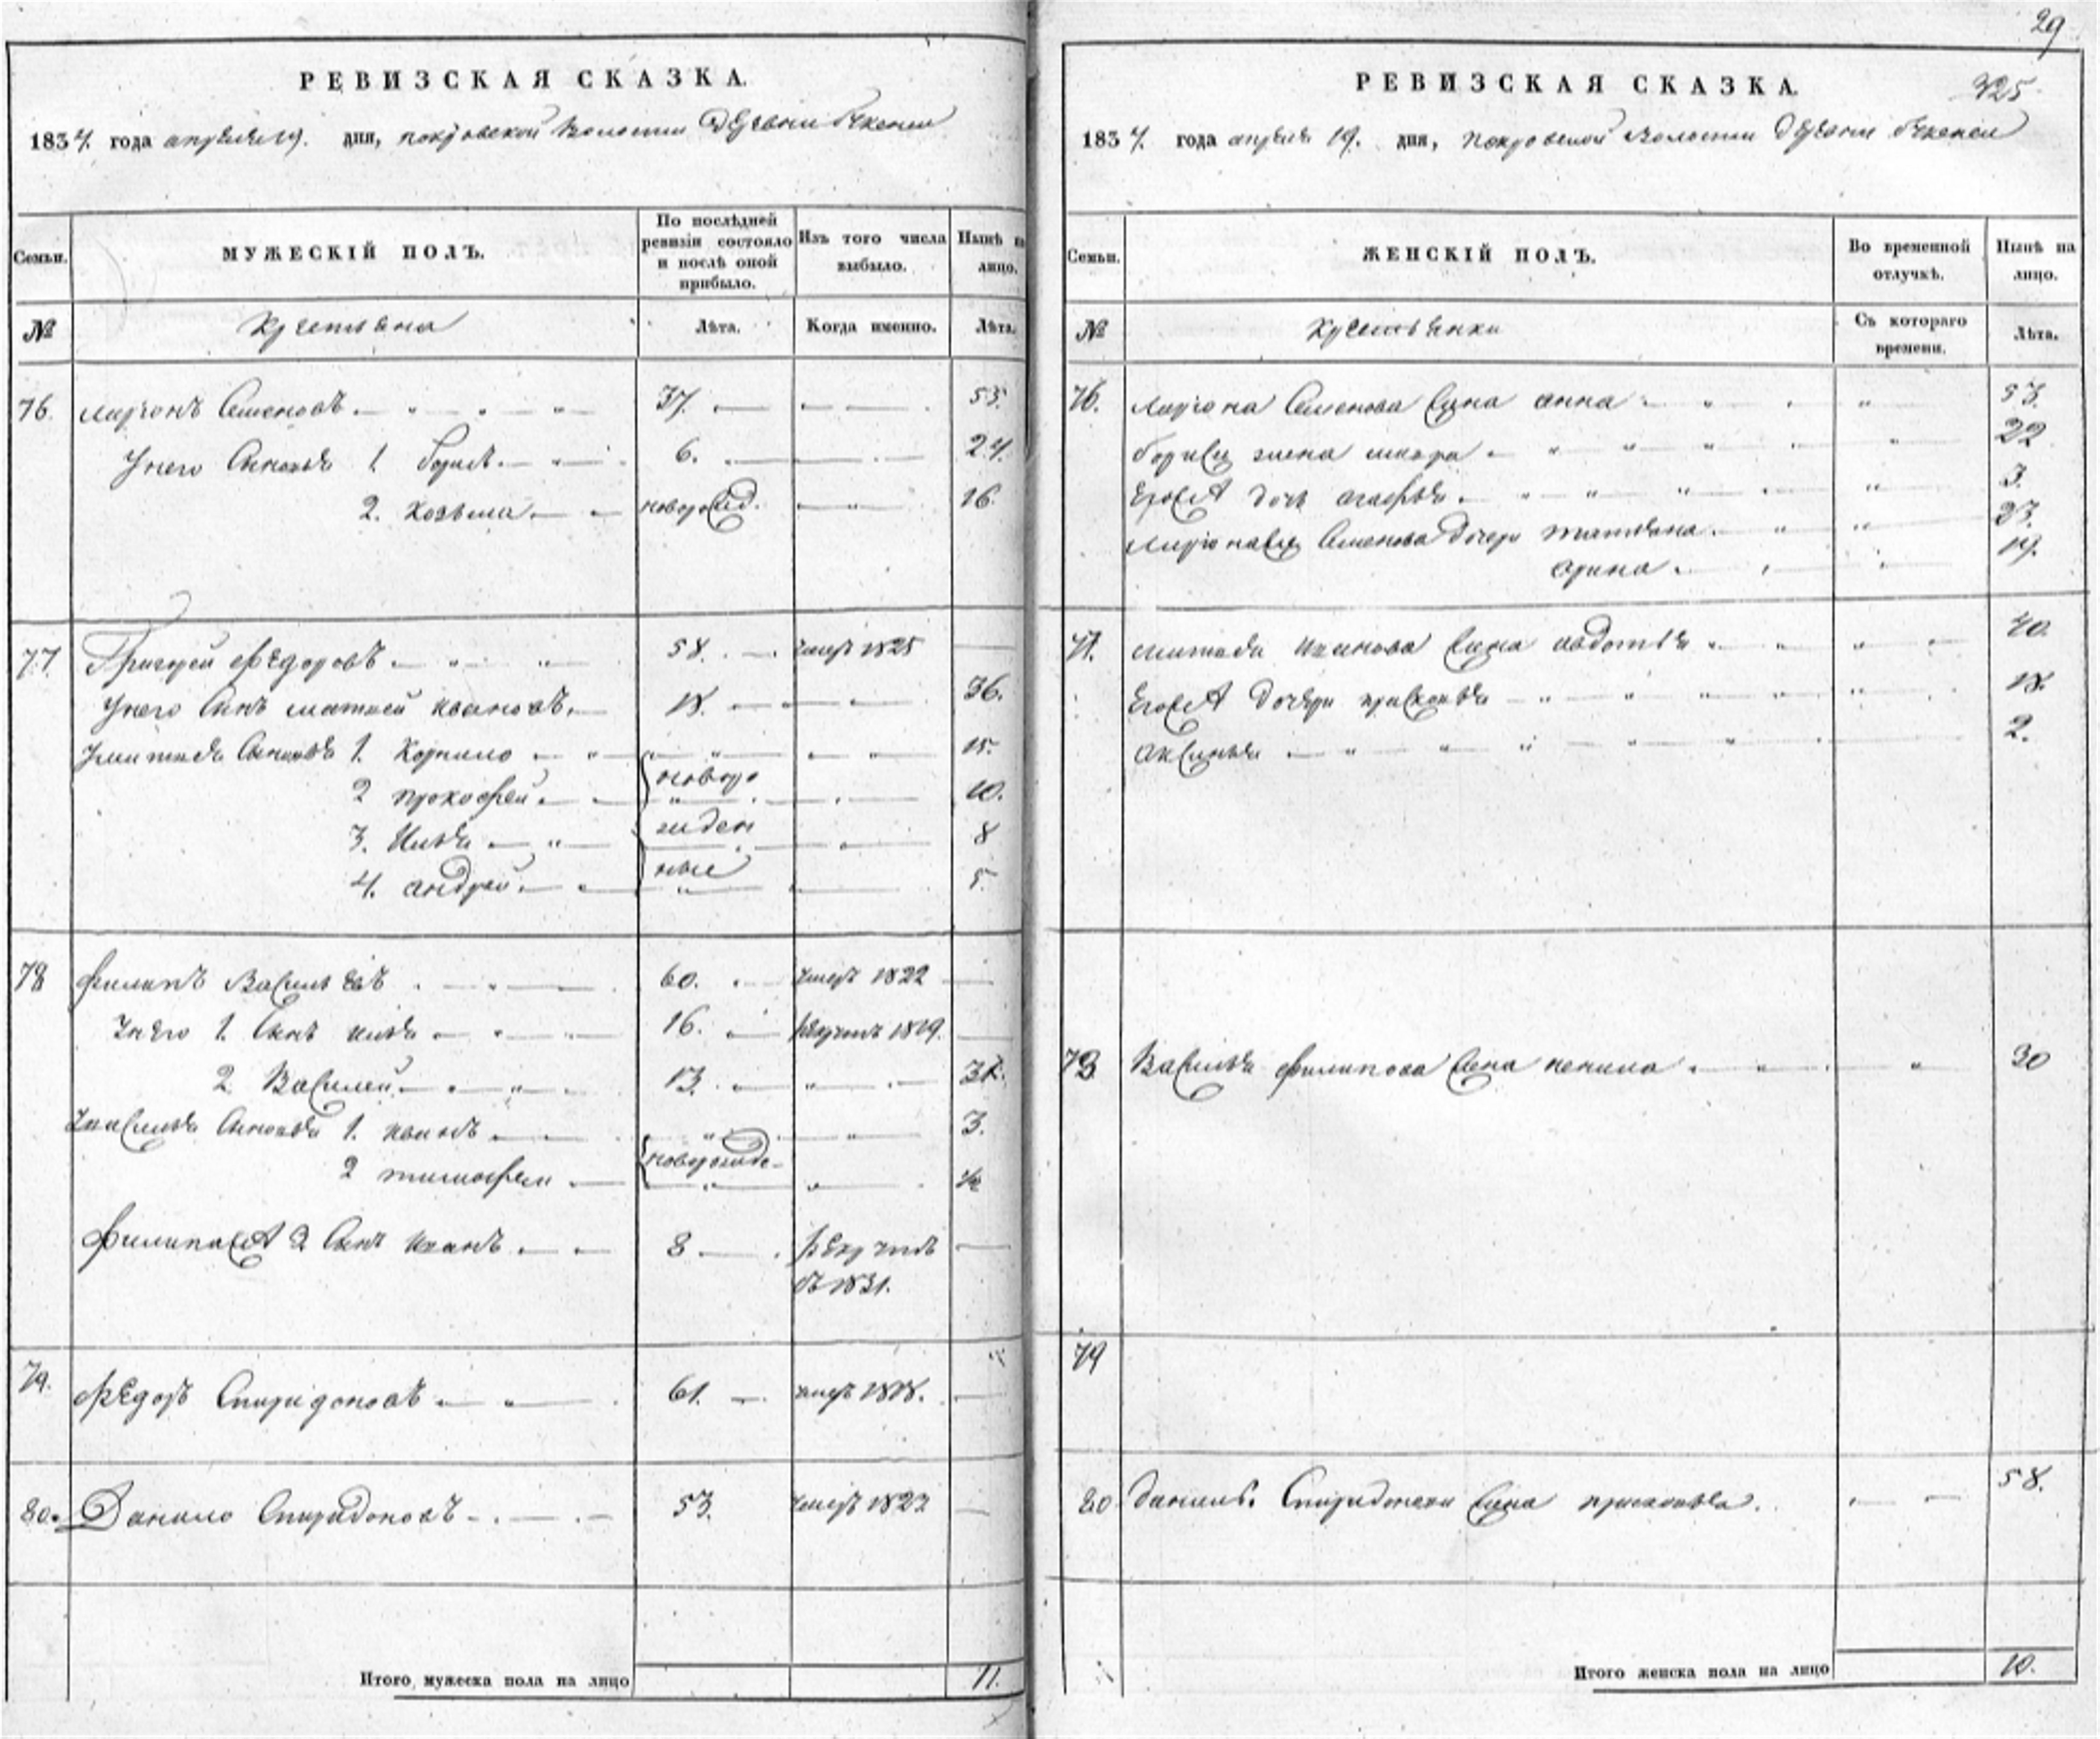 РЕВИЗСКАЯ СКАЗКА.
1834. года апреля 19. дня, покровской волости деревни
МУЖЕСКІЙ ПОЛЪ.
Семьи.
По послѣдней ревизіи состояло и послѣ оной прибыло.
Изъ того числа выбыло.
Нынѣ на лицо.
№
крестьяна
Лѣта.
Когда именно.
Лѣта.
76. Ларионъ Семеновъ 37. 55.
Унего Сыновья 1. борисъ 6. 24.
2. козьма новорожд. 16.
77. Григорей Федоровъ 58. умеръ 1825
Унего Сынъ матвей ивановъ 18. 36.
Уматвея Сыновья 1. Корнило 15.
2 прокофей новоро 10.
3. Илья жден 8
4. андрей ные 5.
78 филипъ Васильевъ 60. умеръ 1822
Унего 1. Сынъ илья 16. рекрутъ 1819.
2 Василей 13.
Увасилья Сыновья 1. иванъ 3.
2 тимофеи новорожде- 1/2
филипа 2 Сынъ иванъ 8 рекрутъ
въ 1831.
79. Федоръ Спиридоновъ 61. умеръ 1818.
80. Данило Спиридоновъ 53. умеръ 1822
Итого мужеска пола на лицо 11.
29
325
РЕВИЗСКАЯ СКАЗКА.
1834. года апреля 19. дня, покровской волости деревни
Семьи.
ЖЕНСКІЙ ПОЛЪ.
Во временной отлучкѣ.
Нынѣ на лицо.
№
крестьянки
Съ котораго времени.
Лѣта.
76. Лариона Семенова Жена анна 53.
бориса жена 22
Его дочь агафья 3.
Семенова дочери татьяна 23.
арина 19.
77. матвея иванова Жена авдотья 40.
Его дочери прасковья 18.
аксинья 2.
78 Василья филипова Жена 30
79
80 данилы Спиридонова Жена прасковья 58.
Итого женска пола на лицо 10.